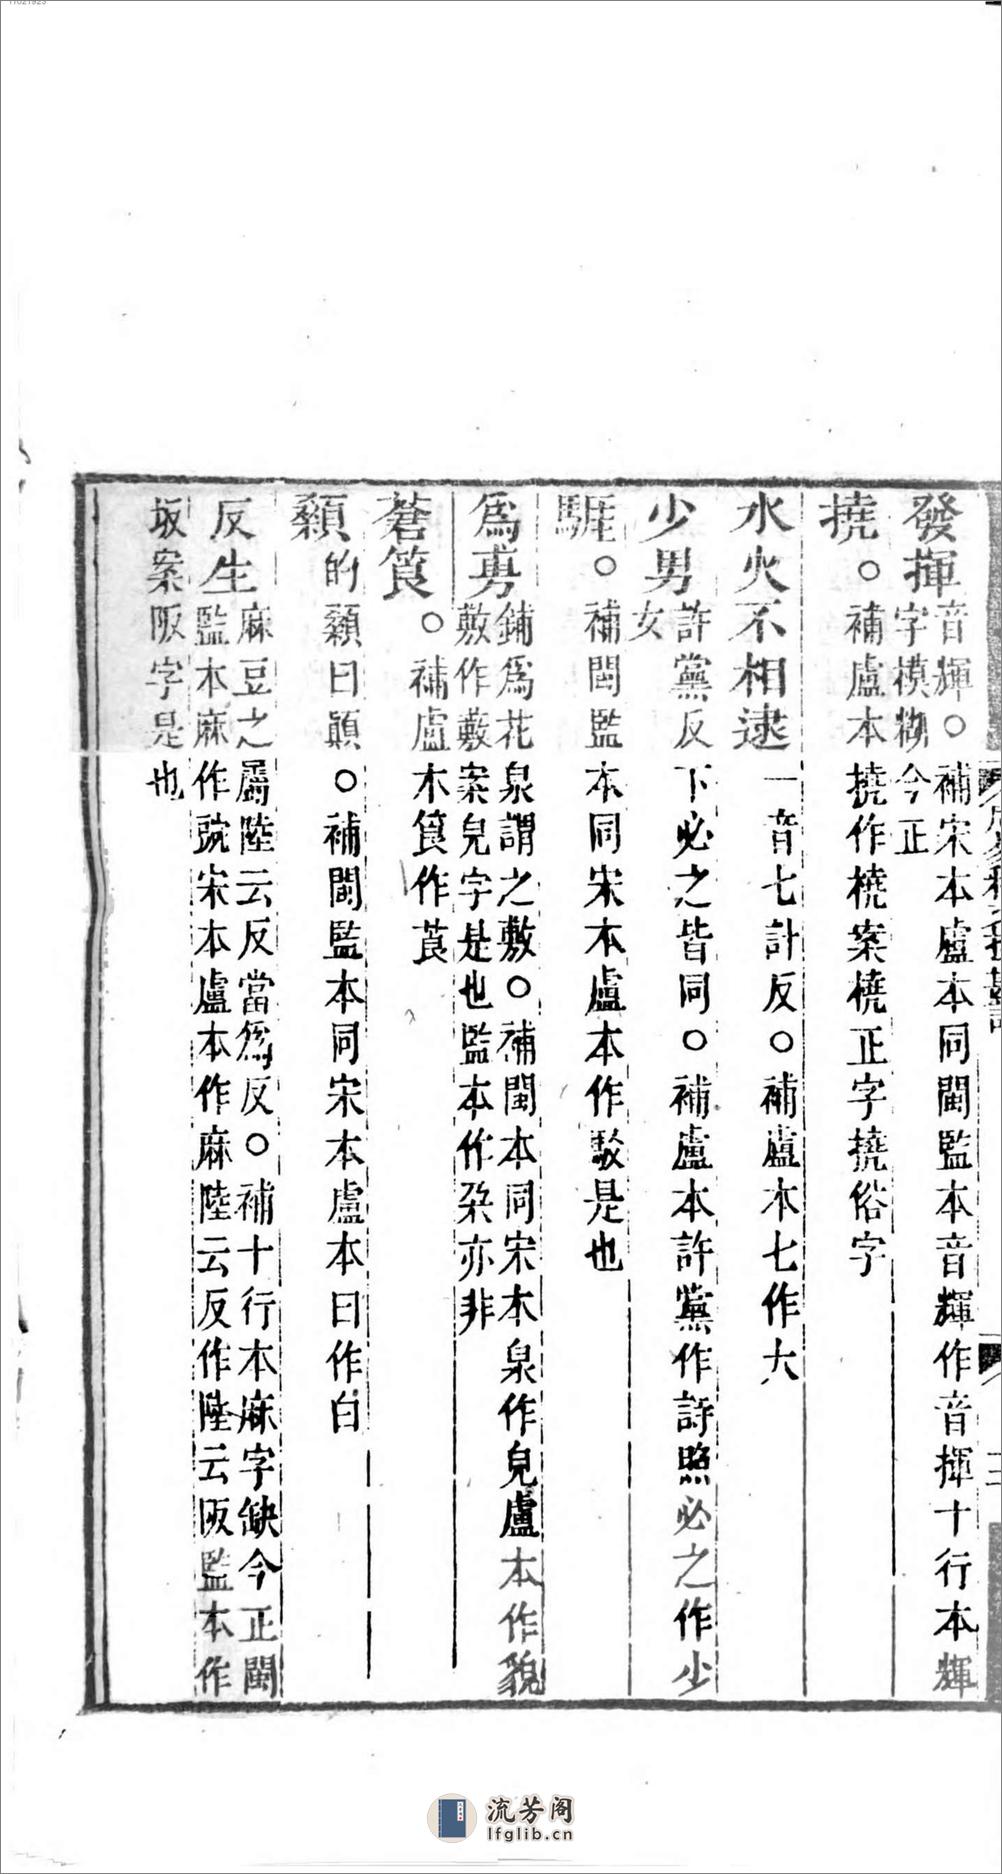 發揮音輝○補宋本盧本同閩監本音輝作音揮十行本輝
字模糊今正
撓○補盧本撓作橈案橈正字撓俗字
水火不相逮一音七計反○補盧本七作大
少男許黨反下必之皆同○補盧本許黨作詩照必之作少
女
駹○補閩監本同宋本盧本作駁是也
為旉鋪為花泉謂之敷○補閩本同宋本泉作皃盧本作貌
敷作藪案皃字是也監本作朶亦非
蒼筤○補盧本筤作莨
顙的顙曰顚○補閩監本同宋本盧本曰作白
反生麻豆之屬陸云反當為反○補十行本麻字缺今正閩
監本麻作豌宋本盧本作麻陸云反作陸云阪監本作
坂案阪字是也
三
流芳阁
lfglib.cn